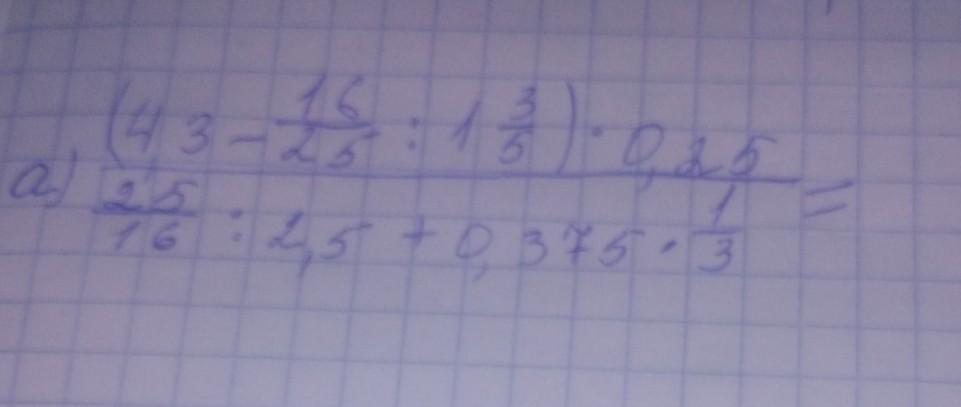 (4,3 - 16/25 : 1 3/5) · 0,25
a) ─────────────── =
25/16 : 2,5 + 0,375 · 1/3